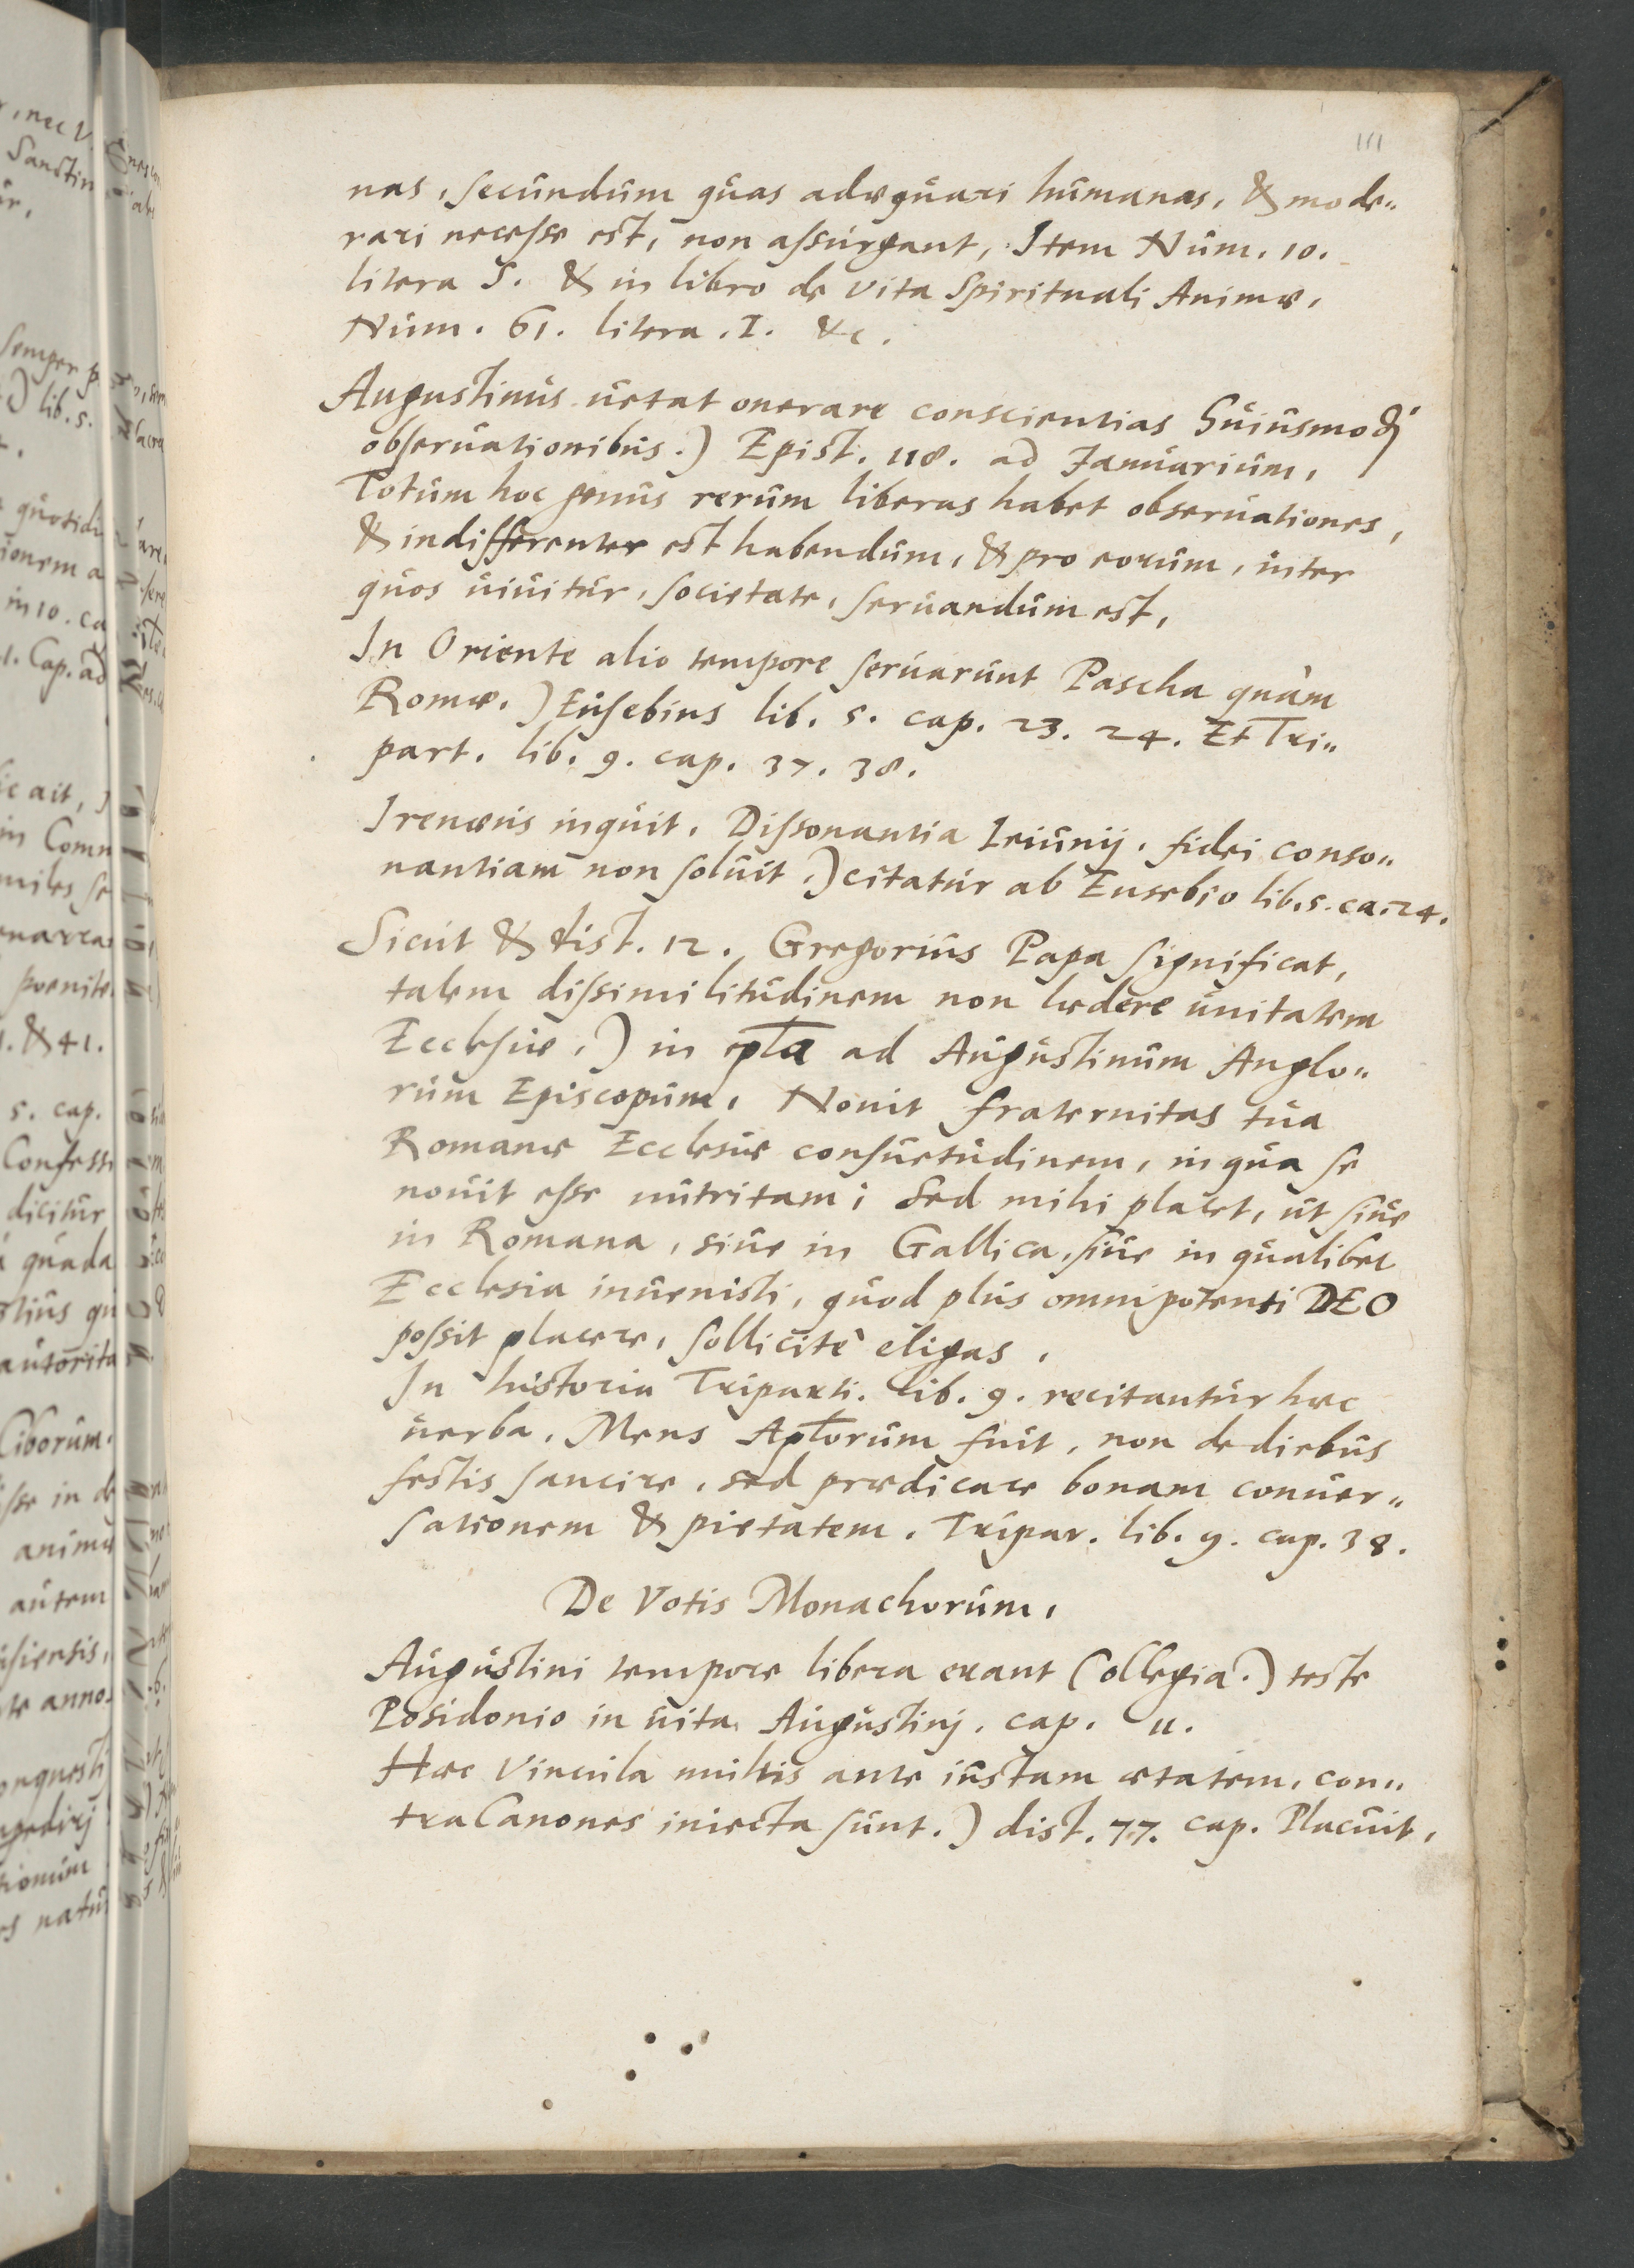 111
nas, secundum quas adæquari humanas, & mode„
rari necesse est, non assurgant, Item Num. 10.
litera S. & in libro de vita Spirituali Animæ,
Num. 61. litera. I. &c.
Augustinus uetat onerare conscientias huiusmodj
obseruationibus.) Epist. 118. ad Januarium,
Totum hoc genus rerum liberas habet obseruationes,
& indifferenter est habendum, & pro eorum, inter
quos uiuitur, societate, seruandum est,
In Oriente alio tempore seruarunt Pascha quàm
Romæ.) Eusebius lib. 5. cap. 23. 24. Et Tri„
part. lib. 9. cap. 37. 38.
Irenæus inquit, Dissonantia Ieiunij, fidei conso„
nantiam non soluit.) citatur ab Eusebio lib. 5. ca. 24.
Sicut & dist. 12. Gregorius Papa significat,
talem dissimilitudinem non lædere unitatem
Ecclesiæ,) in epla ad Augustinum Anglo„
rum Episcopum, Nouit fraternitas tua
Romanæ Ecclesiæ consuetudinem, in qua se
nouit esse nutritam; Sed mihi placet, ut siue
in Romana, siue in Gallica, siue in qualibet
Ecclesia inuenisti, quod plus omnipotenti DEO
possit placere, sollicitè eligas,
In historia Triparti. lib. 9. recitantur hæc
uerba, Mens Aplorum fuit, non de diebus
festis sancire, sed prædicare bonam conuer„
sationem & pietatem. Tripar. lib. 9. cap. 38.
De Votis Monachorum,
Augustini tempore libera erant Collegia.) teste
Posidonio in uita Augustinj. cap. 11.
Hæc Vincula multis ante iustam ætatem, con„
tra Canones iniecta sunt.) dist. 77. cap. Placuit,